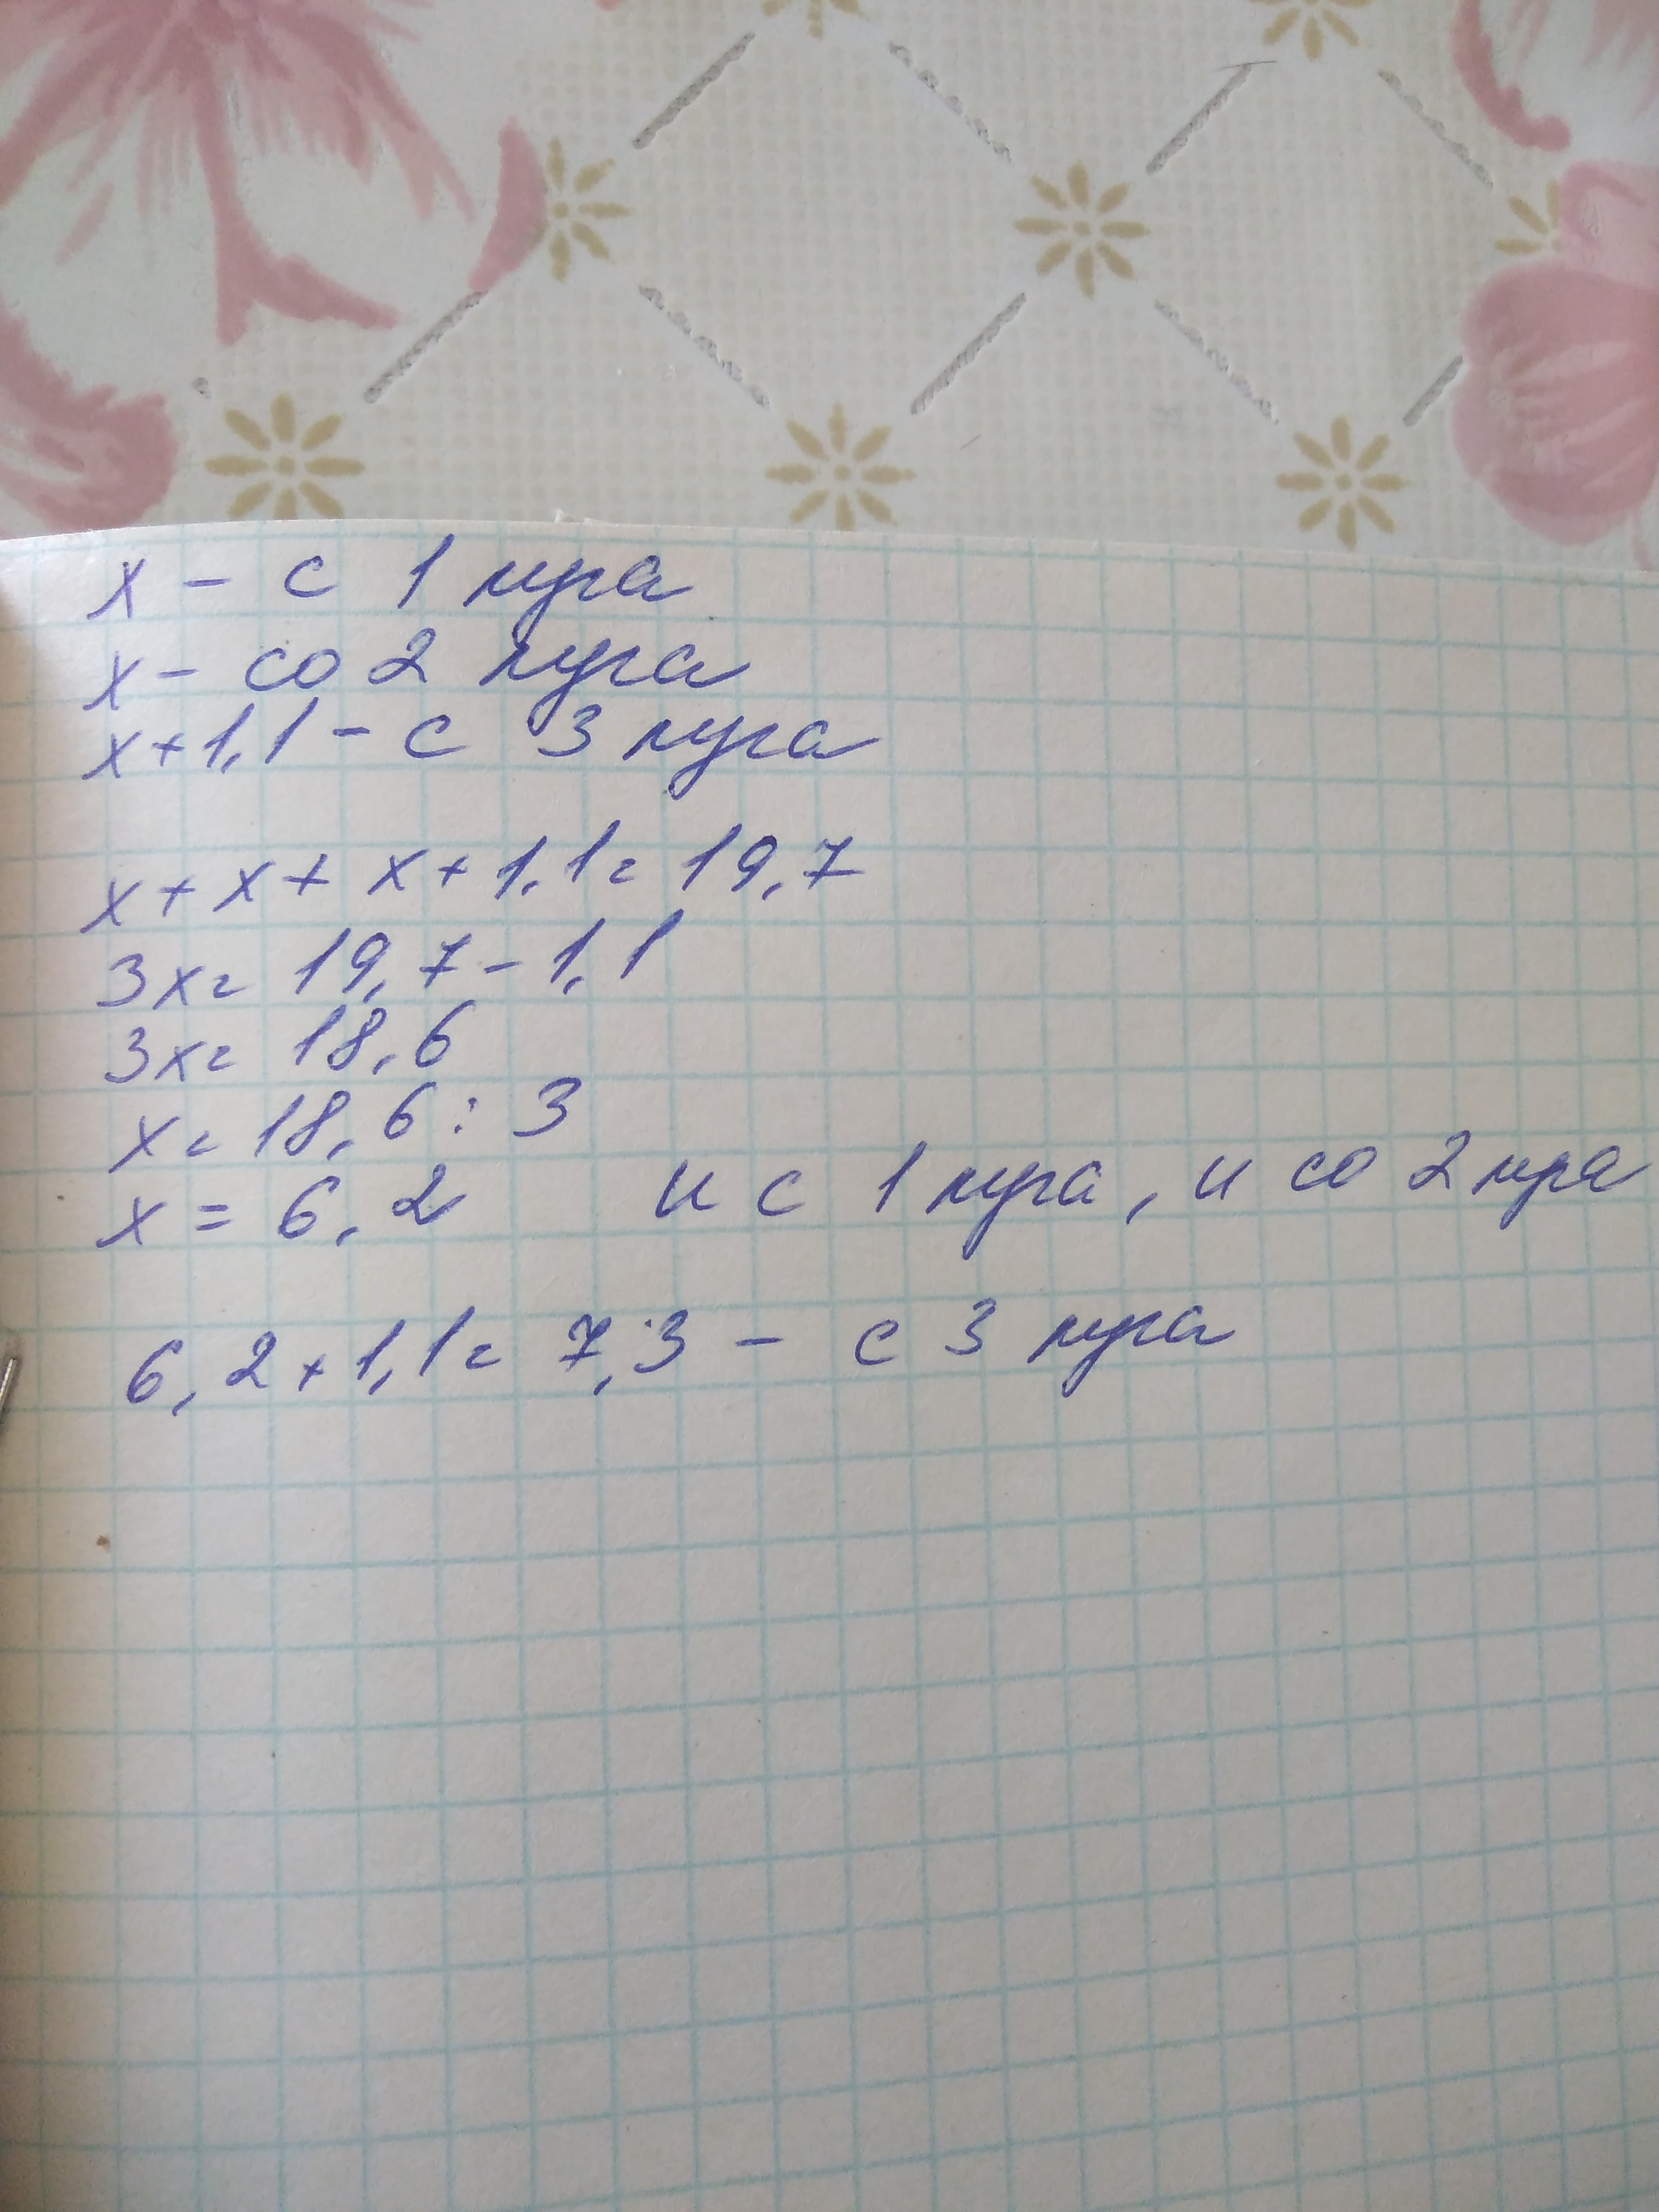 х - с 1 луга
х - со 2 луга
х+1,1 - с 3 луга
х + х + х + 1,1 = 19,7
3х = 19,7 - 1,1
3х = 18,6
х = 18,6 : 3
х = 6,2 и с 1 луга, и со 2 луга
6,2 + 1,1 = 7,3 - с 3 луга